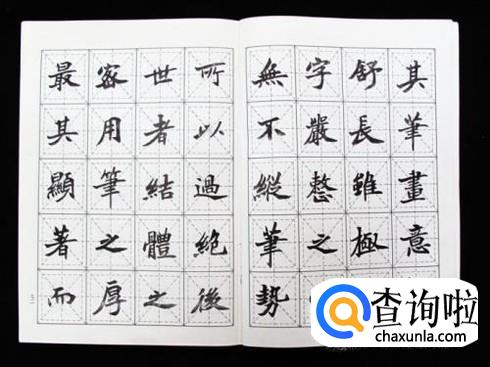 其筆畫意
舒長雖極
字嚴整之
無不縱筆勢
所以過絕後
世者結體之
密用筆之厚
最其顯著而
查询啦
chaxunla.com